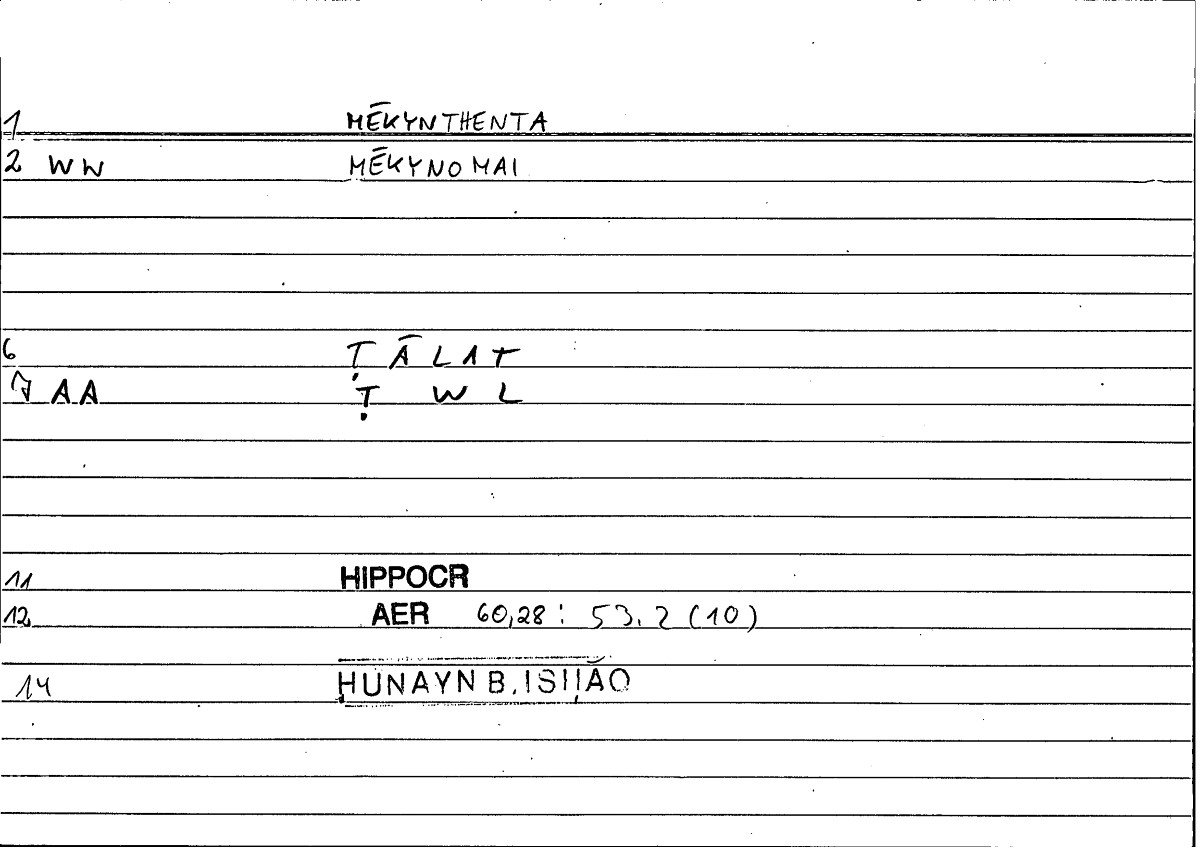 1 MĒKYNTHENTA
2 WW MĒKYNOMAI
6 ṬĀLAT
7 AA ṬWL
11 HIPPOCR
12 AER 60,28: 53.2 (10)
14 ḤUNAYN B. ISḤĀQ